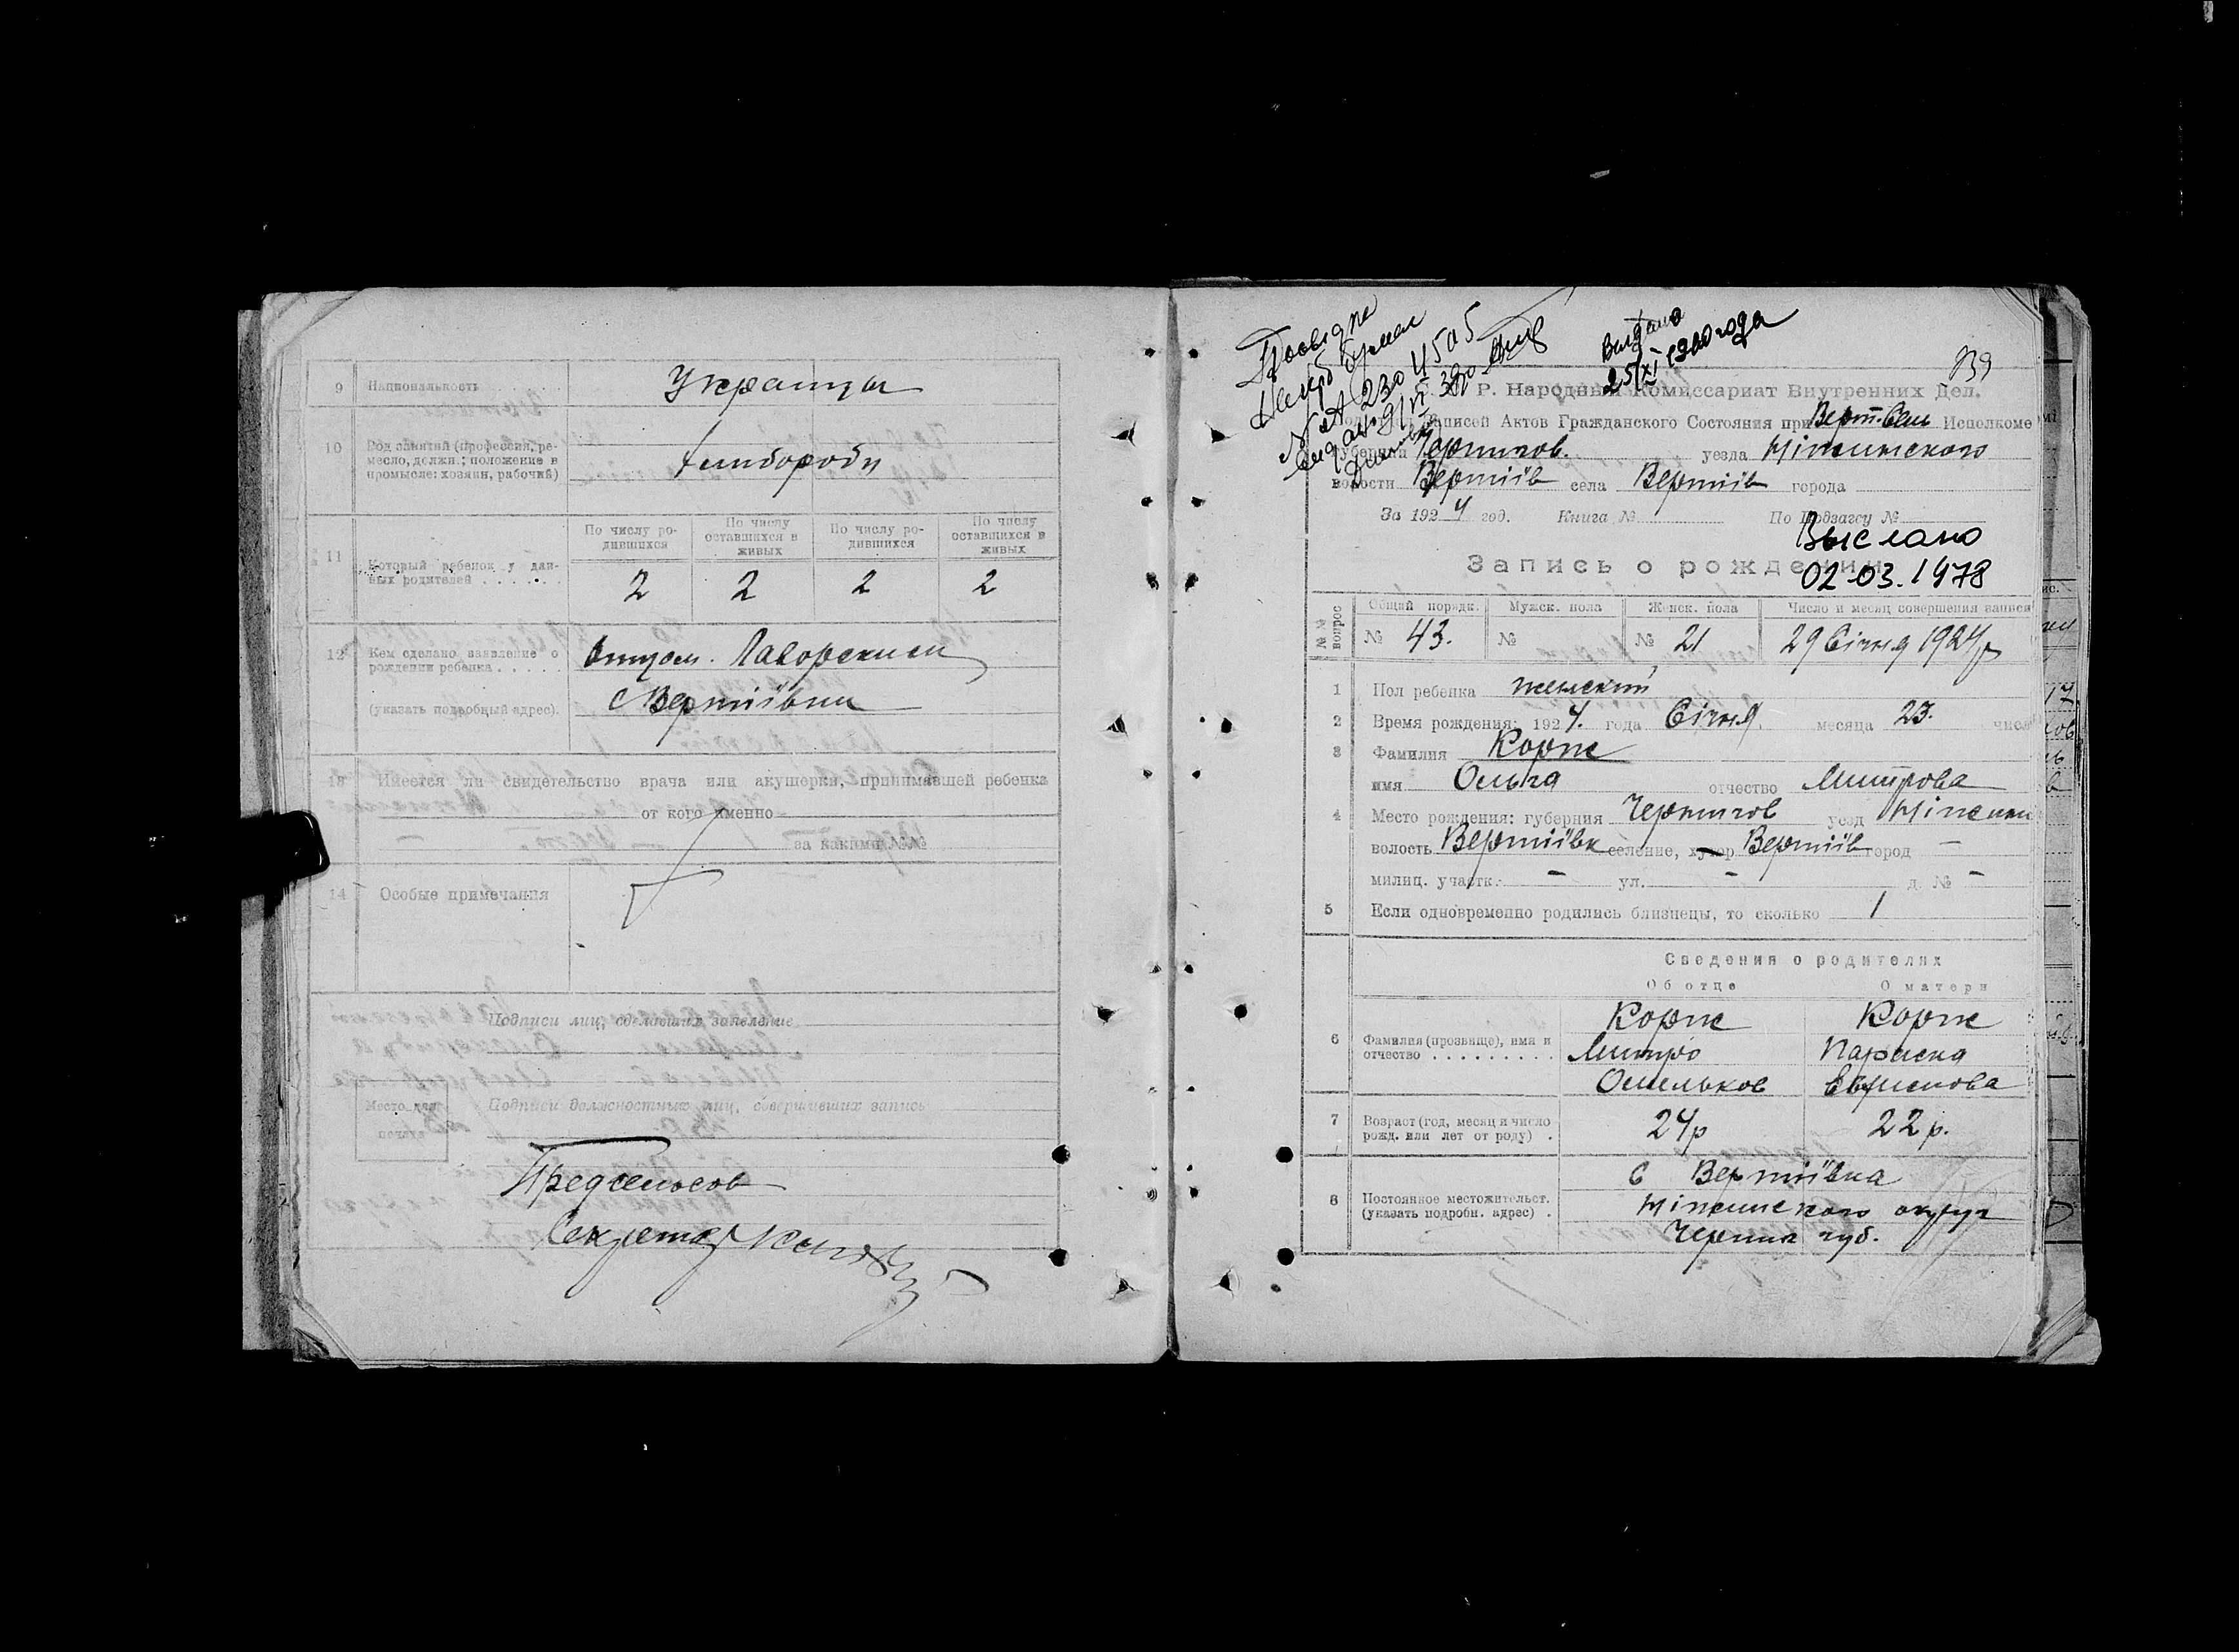 9 Национальность Украинцы
10 Род занятий (профессия, ре-
месло, должн.; положение в
промысле: хозяин, рабочий)
хлибороби
11 Который ребенок у дан-
ных родителей
По числу ро-
дившихся
По числу
оставшихся в
живых
По числу ро-
дившихся
По числу
оставшихся в
живых
2 2 2 2
12 Кем сделано заявление о
рождении ребенка
(указать подробный адрес).
с Вертіївки
13 Имеется ли свидетельство врача или акушерки, принимавшей ребенка
от кого именно
за какими №№
14 Особые примечания
Подписи лиц, сделавших заявление
Подписи должностных лиц, совершивших запись
Место для
печати
Предсельсов
Секретар
Выдано
25/XI 1940 года
839
Р. Народный Комиссариат Внутренних Дел.
Записей Актов Гражданского Состояния при Верт. Сель Исполкоме
губернии Чернигов. уезда Ніжинського
волости Вертіїв села Вертіїв города
За 1924 год. Книга № По Подзагсу №
Выслано
02-03.1978
Запись о рождении
№№ вопрос
Общий порядк. Мужск. пола Женск. пола Число и месяц совершения записи
№ 43. № № 21 29 Січня 1924 р
1 Пол ребенка женский
2 Время рождения: 1924. года Січня месяца 23. число
3 Фамилия Корж
имя Ольга отчество Митрова
4 Место рождения: губерния Чернигов уезд Ніжинс
волость Вертіївк селение, хутор Вертіїв город —
милиц. участк. — ул. — д. № —
5 Если одновременно родились близнецы, то сколько 1
Сведения о родителях
Об отце О матери
6 Фамилия (прозвище), имя и
отчество
Корж Корж
Митро Параска
Омельков
7 Возраст (год, месяц и число
рожд. или лет от роду) .
24р 22 р.
8 Постоянное местожительст.
(указать подробн. адрес) .
с Вертіївка
Ніжинського округи
Черниг губ.